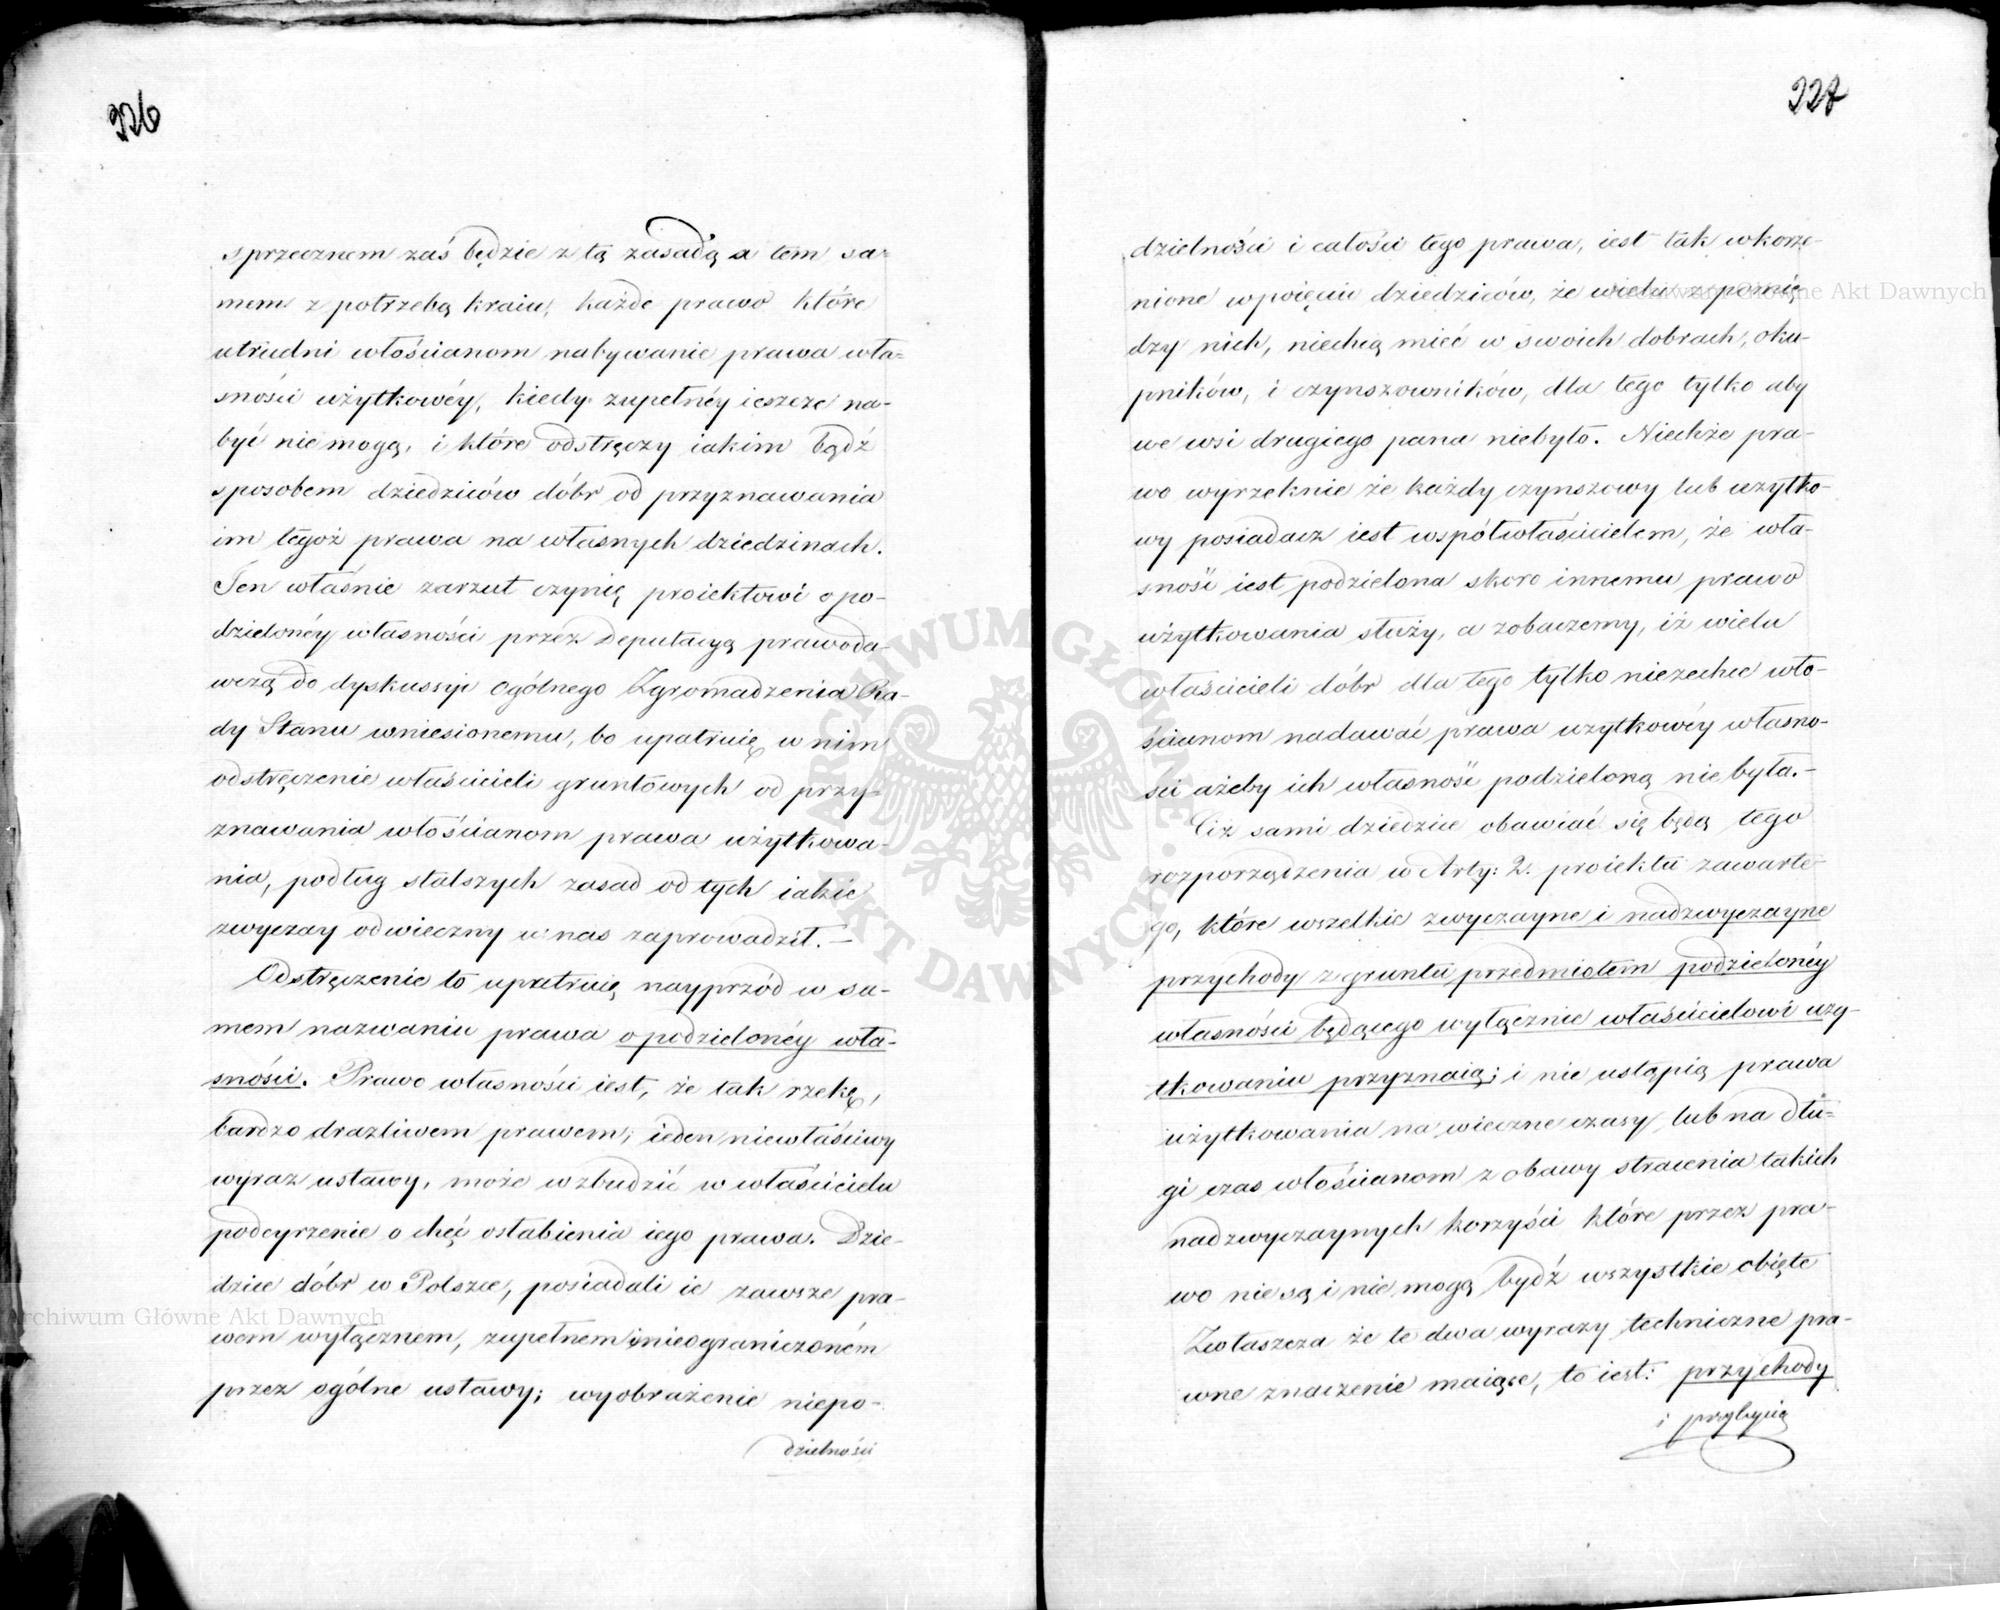 926
sprzecznem zaś będzie z tą zasadą a tem sa-
mem z potrzebą kraiu, każde prawo które
utrudni włościanom nabywanie prawa wła-
sności użytkowéy, kiedy zupełnéy ieszcze na-
być nie mogą, i które odstręczy iakim bądź
sposobem dziedziców dóbr od przyznawania
im tegoż prawa na własnych dziedzinach.
Ten właśnie zarzut czynię proiektowi o po-
dzielonéy własności przéz Deputacyą prawoda-
wczą do dyskussyi Ogólnego Zgromadzenia Ra-
dy Stanu wniesionemu, bo upatruię w nim
odstręczenie właścicieli gruntowych od przy-
znawania włościanom prawa użytkowa-
nia, podług stalszych zasad od tych iakie
zwyczay odwieczny u nas zaprowadził. –
Odstręczenie to upatruię nayprzód w sa-
mem nazwaniu prawa o podzielonéy wła-
sności. Prawo własności iest, że tak rzekę,
bardzo drażliwem prawem; ieden niewłaściwy
wyraz ustawy, może wzbudzić w właścicielu
podeyrzenie o chęć osłabienia iego prawa. Dzie-
dzice dóbr w Polszce, posiadali ie zawsze pra-
wem wyłącznem, zupełnem i nieograniczoném
przez ogólne ustawy; wyobrażenie niepo-
dzielności
927
dzielności i całości tego prawa, iest tak wkorze-
nione w poięciu dziedziców, że wielu z pomię-
dzy nich, niechcą mieć w swoich dobrach, oku-
pników, i czynszowników, dla tego tylko aby
we wsi drugiego pana niebyło. Niechże pra-
wo wyrzeknie że każdy czynszowy lub użytko-
wy posiadacz iest współwłaścicielem, że wła-
sność iest podzielona skoro innemu prawo
użytkowania służy, a zobaczemy, iż wielu
właścicieli dóbr dla tego tylko niezechce wło-
ścianom nadawać prawa użytkowéy własno-
ści ażeby ich własność podzieloną nie była. –
Ciż sami dziedzice obawiać się będą tego
rozporządzenia w Arty: 2. proiektu zawarte-
go, które wszelkie zwyczayne i nadzwyczayne
przychody z gruntu przedmiotem podzielonéy
własności będącego wyłącznie właścicielowi uży-
tkowaniu przyznaią; i nie ustąpią prawa
użytkowania na wieczne czasy lub na dłu-
gi czas włościanom z obawy stracenia takich
nadzwyczaynych korzyści które przez pra-
wo nie są i nie mogą bydź wszystkie obięte
Zwłaszcza że te dwa wyrazy techniczne pra-
wne znaczenie maiące, to iest: przychody
i przybycia
ARCHIWUM GŁÓWNE AKT DAWNYCH
Archiwum Główne Akt Dawnych
Archiwum Główne Akt Dawnych